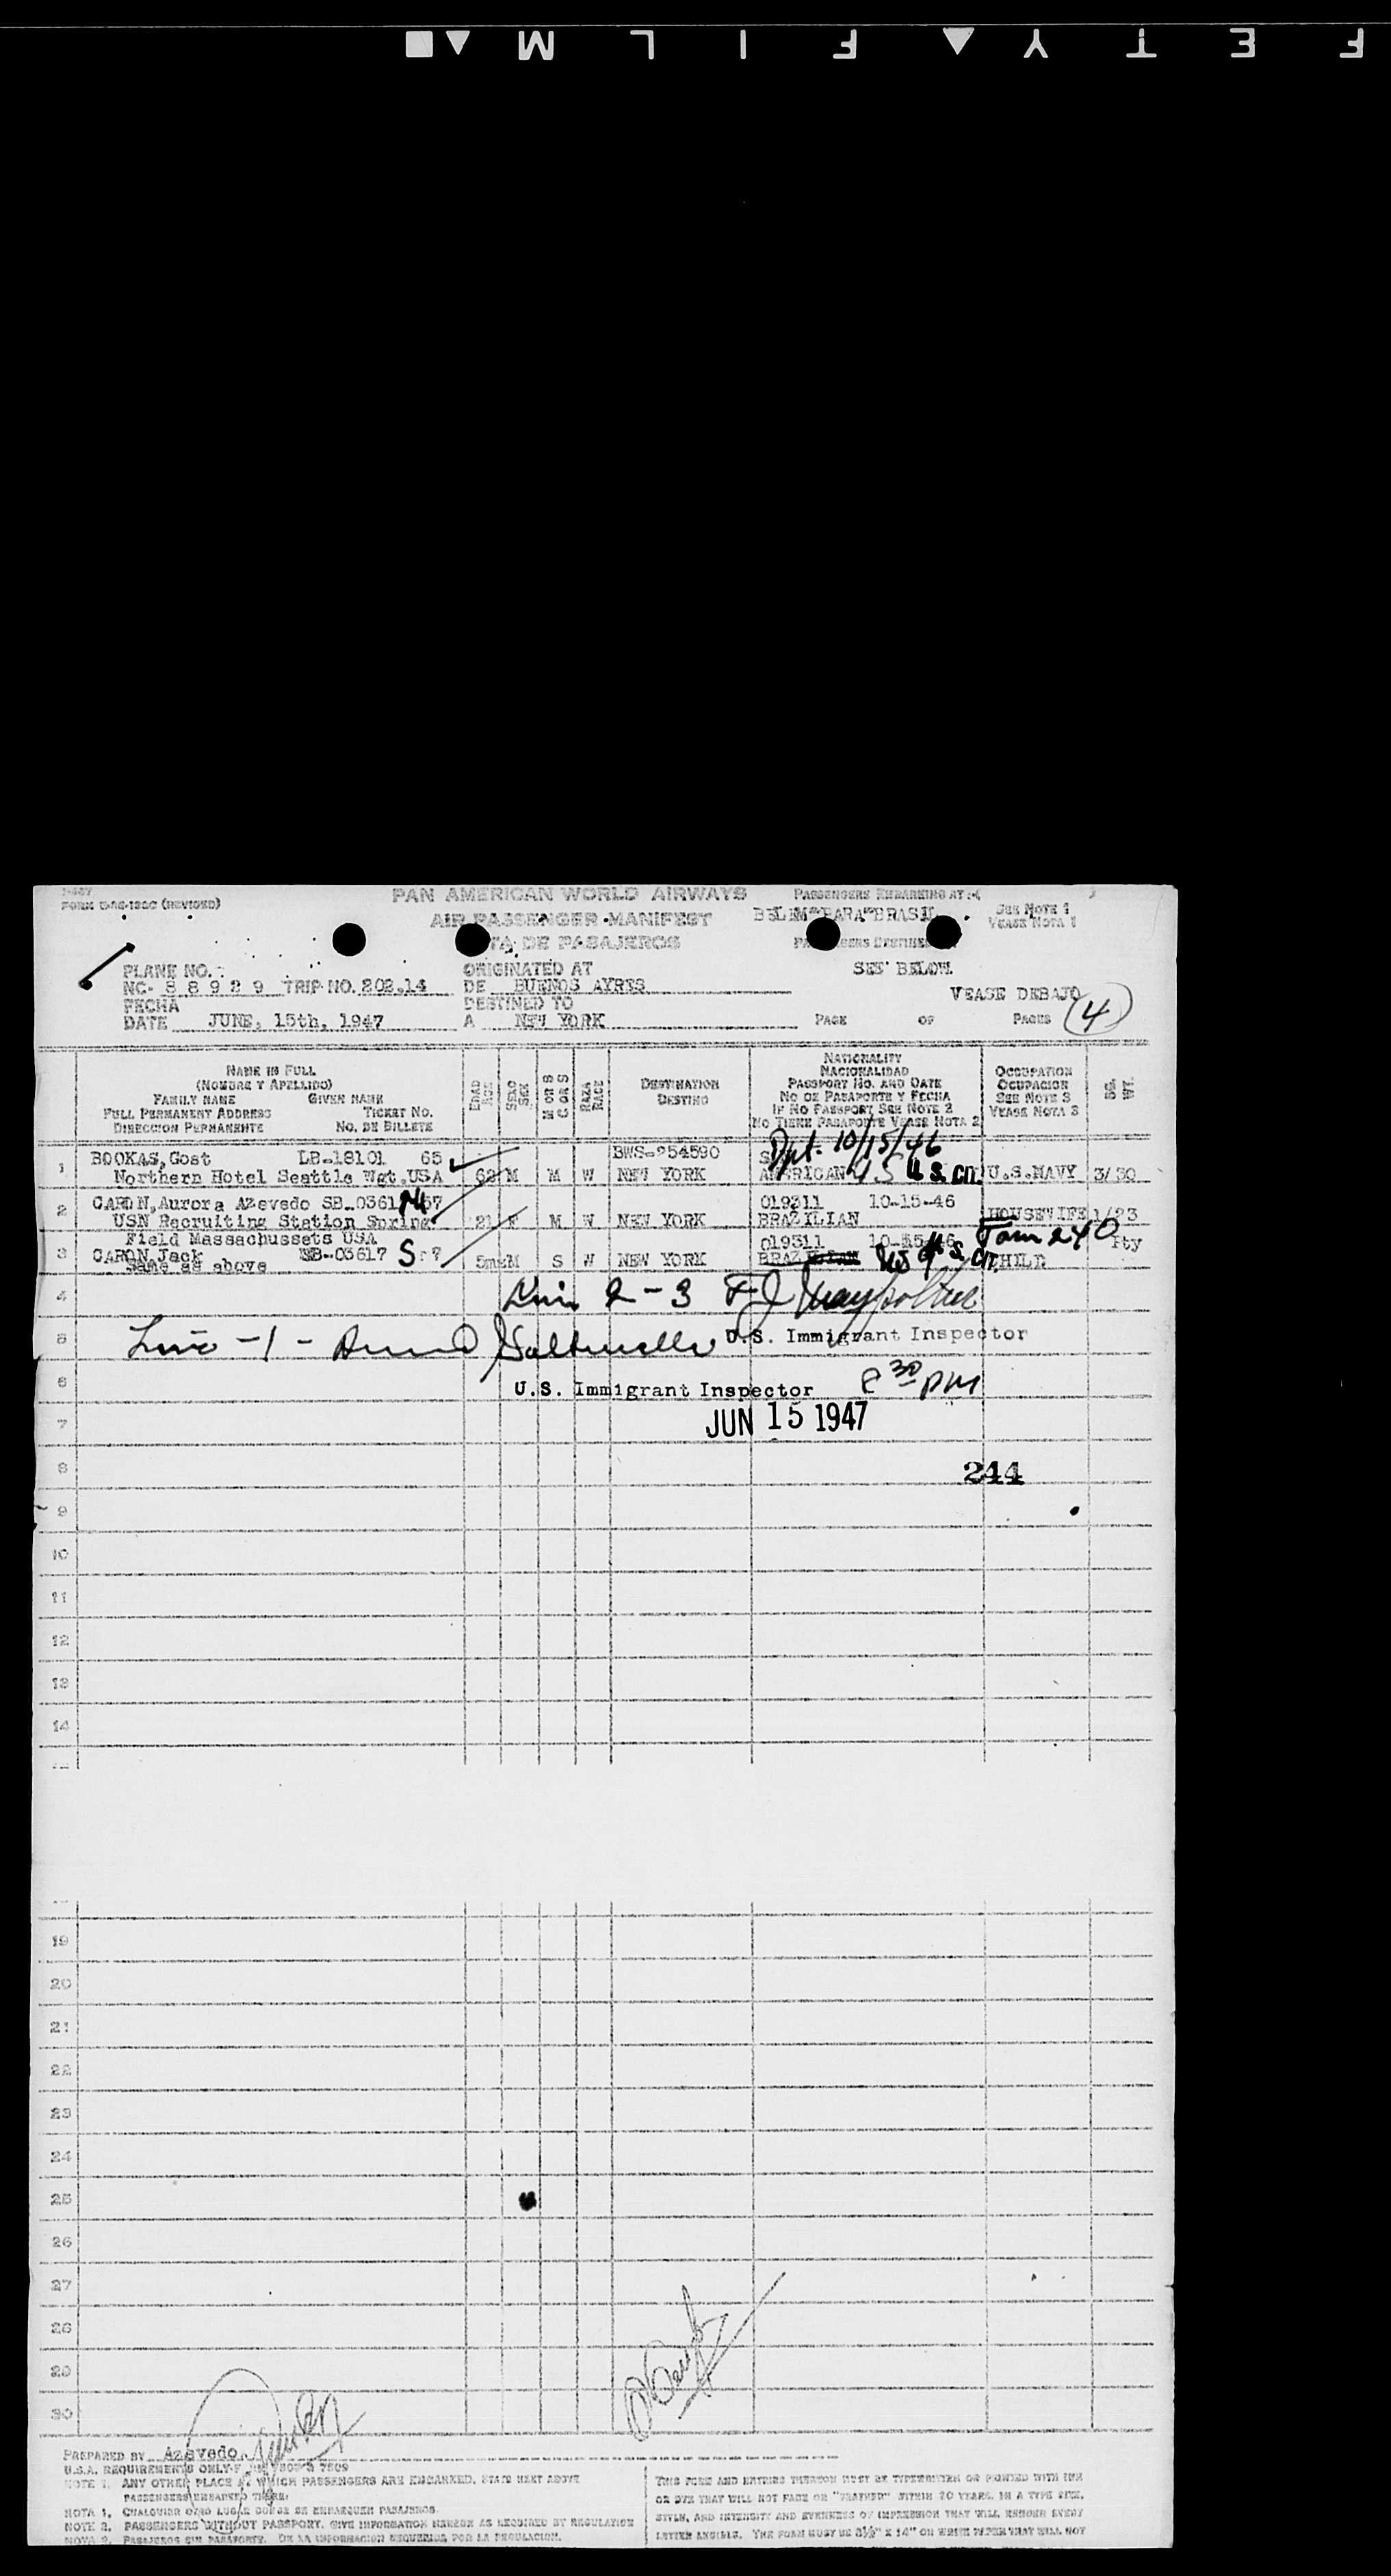 SAFETY FILM
FORM (REVISED)
PAN AMERICAN WORLD AIRWAYS
AIR PASSENGER MANIFEST
DE PASAJEROS
PASSENGERS EMBARKING AT:
BELEM "PARA" BRASIL
SEE NOTE 1
VEASE NOTA 1
SEE BELOW
VEASE DEBAJO
PLANE NO.
NC- 88929 TRIP NO. 202.14
FECHA
DATE JUNE, 15th, 1947
ORIGINATED AT
DE BUENOS AYRES
DESTINED TO
A NEW YORK
PAGE OF PAGES 4
NAME IN FULL
(NOMBRE Y APELLIDO)
FAMILY NAME GIVEN NAME
FULL PERMANENT ADDRESS TICKET NO.
DIRECCION PERMANENTE NO. DE BILLETE
EDAD AGE
SEXO SEX
M OR S
C OR S
RAZA RACE
DESTINATION
DESTINO
NATIONALITY
NACIONALIDAD
PASSPORT NO. AND DATE
NO DE PASAPORTE Y FECHA
IF NO PASSPORT SEE NOTE 2
NO TIENE PASAPORTE VEASE NOTA 2
OCCUPATION
OCUPACION
SEE NOTE 3
VEASE NOTA 3
WT.
1 BOOKAS, Gost LB-18101 65 BWS-254590 10/15/46
Northern Hotel Seattle Wgt. USA 62 M M W NEW YORK AMERICAN US U.S. CIT. U.S.NAVY 3/30
2 CARON, Aurora Azevedo SB-03617 019311 10-15-46
USN Recruiting Station Spring 21 F M W NEW YORK BRAZILIAN HOUSEWIFE 1/23
Field Massachussets USA 019311 10-15-46
3 CARON, Jack SB-03617 5ms M S W NEW YORK U.S. CIT. CHILD
Same as above
4 Line 2-3
5 Line -1- U.S. Immigrant Inspector
6 U.S. Immigrant Inspector 8 30 PM
7 JUN 15 1947
8 244
9
10
11
12
13
14
19
20
21
22
23
24
25
26
27
28
29
30
PREPARED BY Azevedo.
U.S.A. REQUIREMENTS ONLY
NOTE 1. ANY OTHER PLACE AT WHICH PASSENGERS ARE EMBARKED, STATE NEXT ABOVE
PASSENGERS EMBARKED THERE.
NOTA 1. CUALQUIER OTRO LUGAR DONDE SE EMBARQUEN PASAJEROS
NOTE 2. PASSENGERS WITHOUT PASSPORT, GIVE INFORMATION HEREON AS REQUIRED BY REGULATION
NOTA 2. PASAJEROS SIN PASAPORTE. DE LA INFORMACION REQUERIDA POR LA REGULACION.
THIS FORM AND ENTRIES THEREON MUST BE TYPEWRITTEN OR PRINTED WITH INK
OR DYE THAT WILL NOT FADE OR "FEATHER" WITHIN 20 YEARS, IN A TYPE SIZE,
STYLE, AND INTENSITY AND EVENNESS OF IMPRESSION THAT WILL RENDER EVERY
LETTER LEGIBLE. THE FORM MUST BE 8½" X 14" ON WHITE PAPER THAT WILL NOT